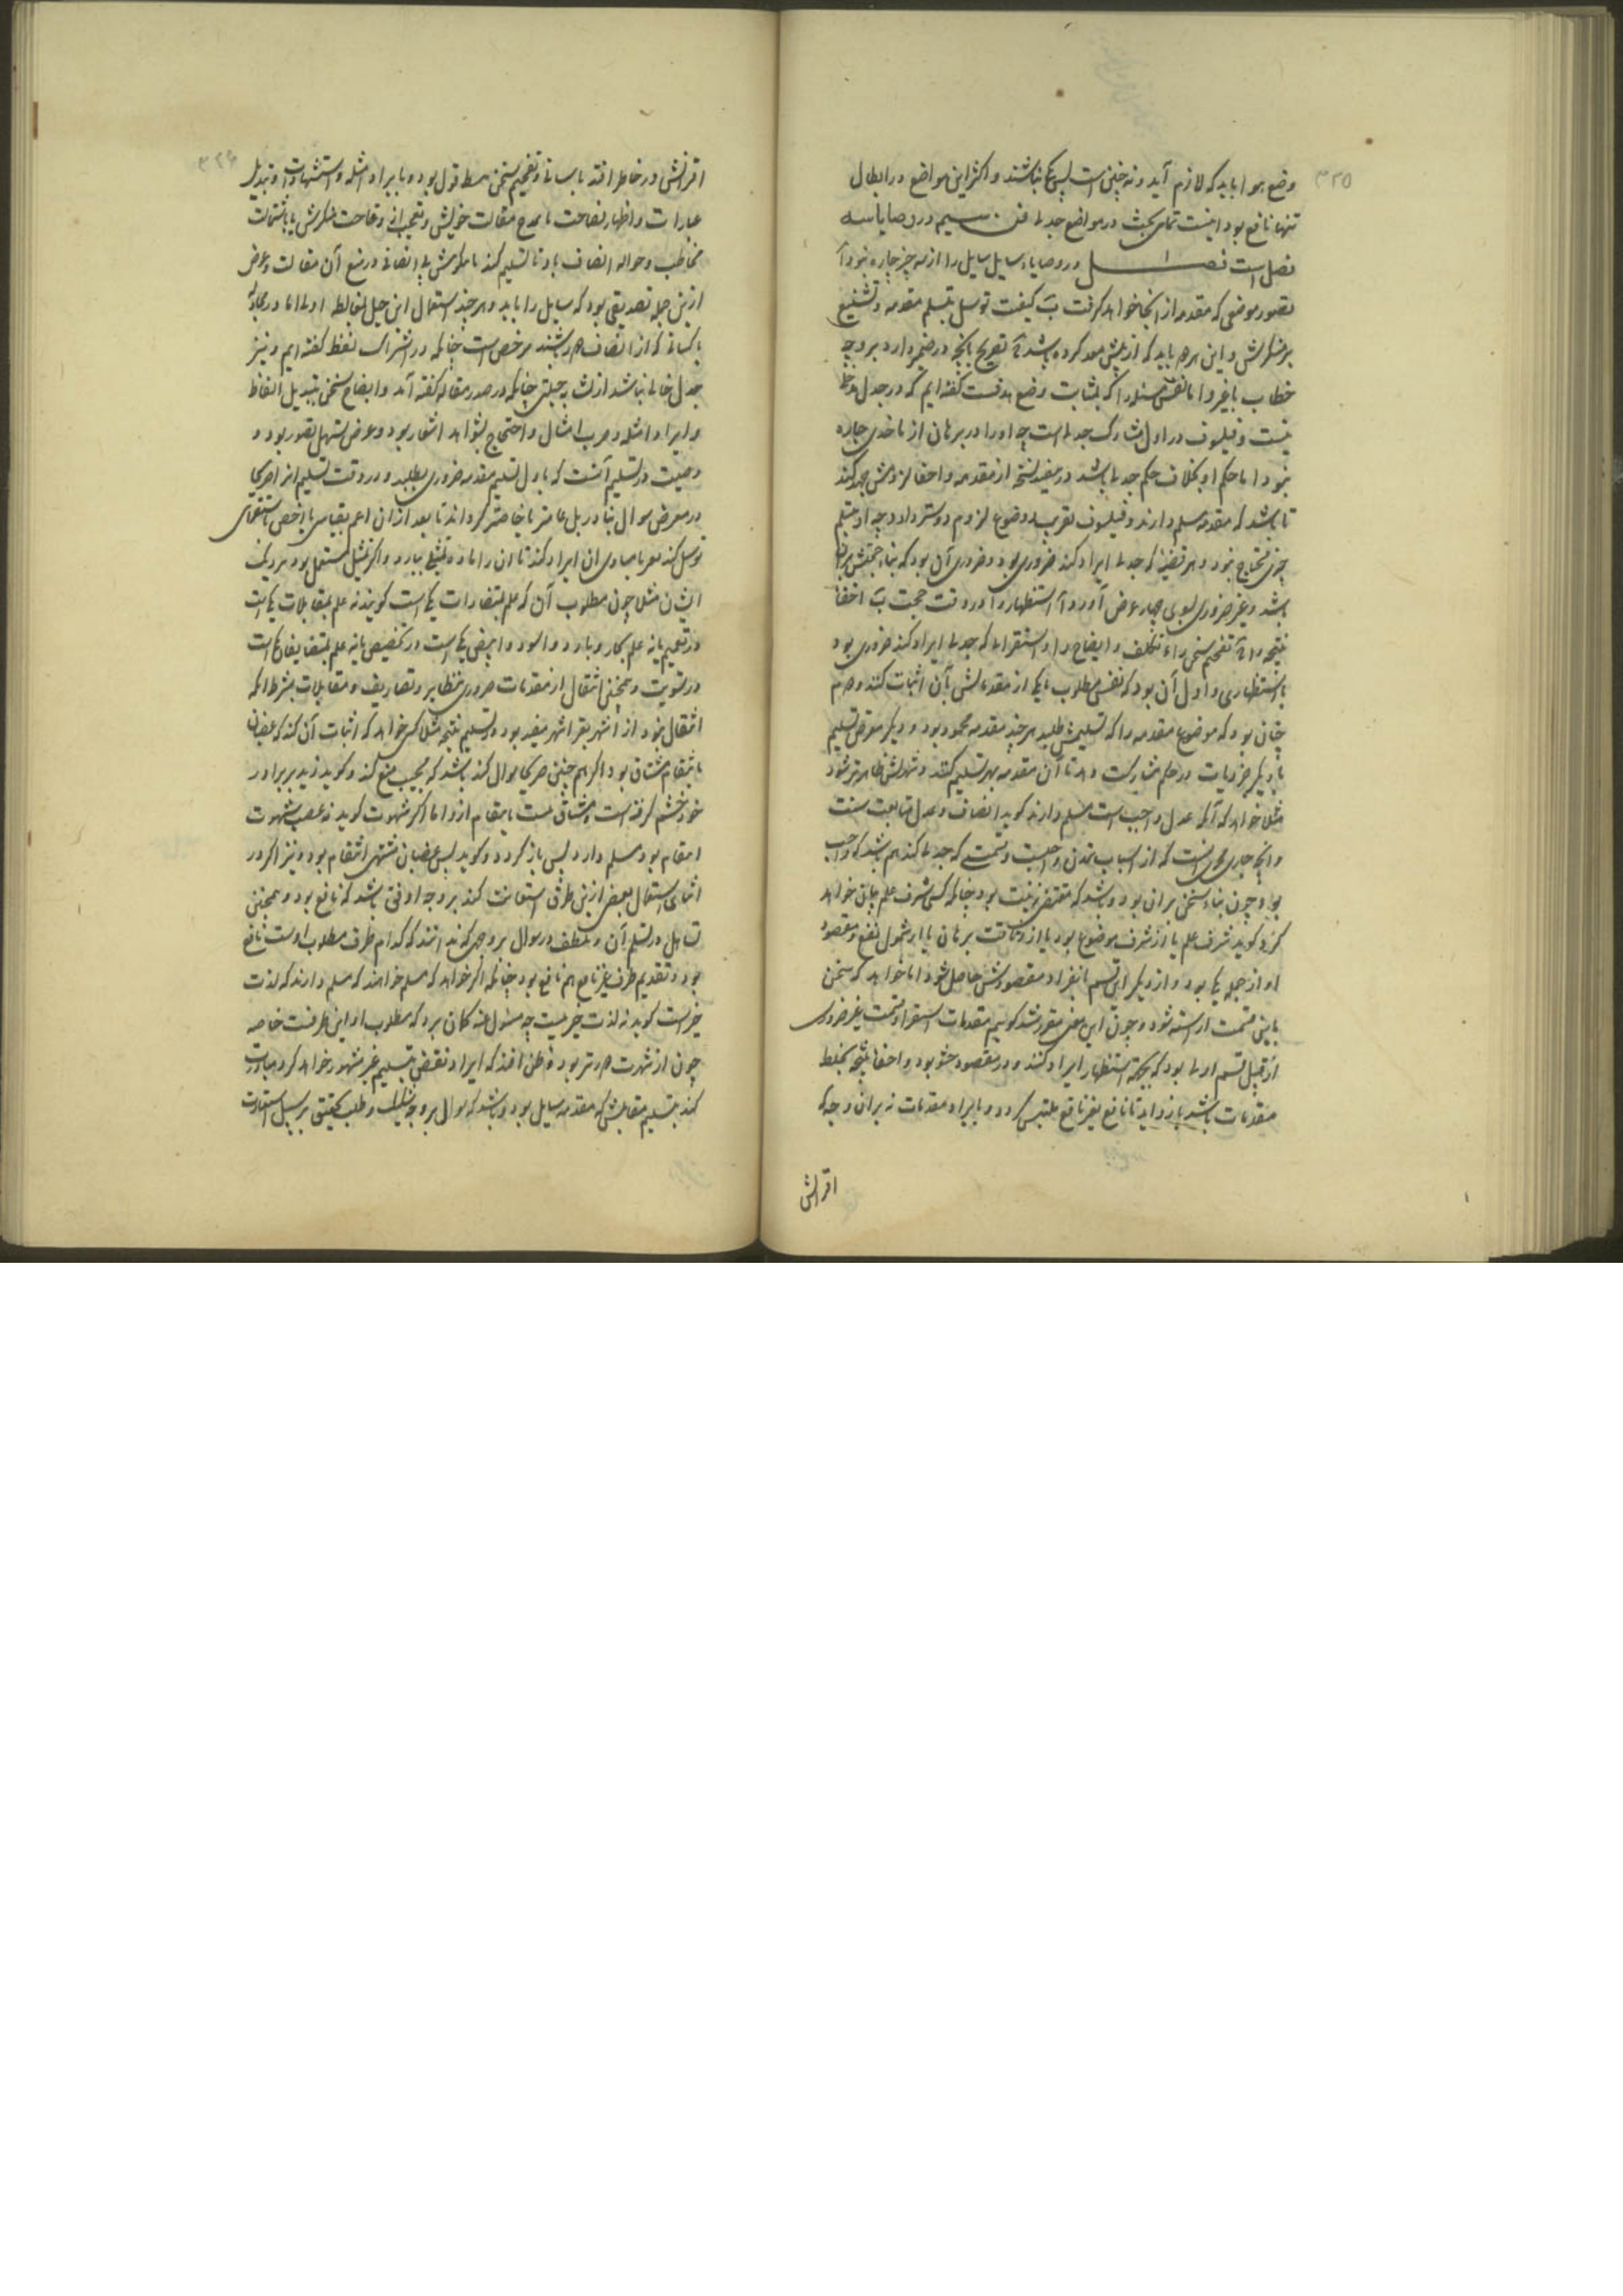 ۳۲۵
وضع هو اباید که لازم آید و نه چنین است پس نباشند و اکثر این مواضع در ابطال
تنها نافع بود اینست تمامی بحث در مواضع جدلی فن سیم در وصایا سه
فصل است فصل ا در وصایاء سایل سایل را از سه چیز چاره نبود آ
تصور موضعی که مقدمه از انجا خواهد گرفت ب کیفیت توسل بتسلیم مقدمه و تشنیع
بر منکرش و این هر باید که از پیش معد کرده باشد ج تصریح بانچه در ضمیر دارد بر وجه
خطاب با غیر و اما نفس مسئله را که بمثابت وضع هدفست گفته‌ایم که در جدل
نیست و فیلسوف در اول مشارک جدلی است چه او را در برهان از ماخذی چاره
نبود اما حکم او بخلاف حکم جدلی باشد در مقدمه و اخفاء لزومش جهد کند
تا باشد که مقدمه مسلم دارند و فیلسوف بقرب و وضوح لزوم دوستر دارد چه او بتسلیم
چیزی محتاج نبود و هر قضیه که جدلی ایراد کند ضروری بود و ضروری آن بود که بناء حجتش بران
باشد و غیر ضروری بسوی چهار غرض آورد آ استظهار را در وقت حجت ب اخفاء
نتیجه را ج تفخیم سخن را تکلف و ایضاح را و استقرا که جدلی ایراد کند ضروری بود
یا استظهاری و اول آن بود که نفس مطلوب یا یکی از مقدماتش بآن اثبات کنند و دوم
چنان بود که موضوع مقدمه را که تسلیمش طلبد هر چند مقدمه محمود بود و دیگر معرض تسلیم
با دیگر جزویات در حکم مشارکت دهد تا آن مقدمه بهتر تسلیم کنند و شهرتش ظاهرتر شود
مثلا خواهد که آنکه عدل واجب است مسلم دارند گوید انصاف و عدل متابعت سنت
و انچه جاری مجری آنست که از اسباب تمدن واجبست و قسمتی که جدلی کند هم باشد که واجب
بود چون بناء سخن بران بود و باشد که مقتضی زینت بود چنانکه کسی شرف علم بیان خواهد
کرد گوید شرف علم یا از شرف موضوع بود یا از وثاقت برهان یا از شمول نفع و مقصود
او از جمله یکی بود و از دیگر اقسام بانفراد مقصودش حاصل شود اما خواهد که سخن
باین قسمت اراسته شود و چون این معنی مقرر شد گوییم مقدمات استقرا و قسمت غیر ضروری
از قبیل قسم اول بود که بجهت استظهار ایراد کنند و در مقصود حشو بود و اخفاء نتیجه بخلط
مقدمات باشد بزواید تا نافع بغیر نافع ملتبس گردد و بایراد مقدمات نه بران وجه که
اقرانش
۳۲۶
اقرانش در خاطر افتد و تفخیم سخن ببسط قول بود و بایراد امثله و استشهادات و تبدیل
عبارات و اظهار فصاحت یا بمدح مقالت خویش و تعجب از وقاحت منکرش یا باستمالت
مخاطب و حواله انصاف باو تا تسلیم کند یا نکوهش بی انصافی در منع آن مقالت و غرض
ازین جمله تصدیقی بود که سایل را باید و هر چند استعمال این حیل بمغالطه اولی اما در مجادله
با کسانی که از انصاف دور باشند مرخص است چنانکه در اشتراک لفظ گفته‌ایم و نیز
جدل خالی نباشد از چنانکه در صدر مقاله گفته آمد و ایضاح سخن بتبدیل الفاظ
و ایراد امثله و ضرب امثال و احتجاج بشواهد اشعار بود و غرض تسهیل تصور بود و
وصیت در تسلیم آنست که باول تسلیم مقدمه ضروری نطلبد و در وقت تسلیم انرا صریحا
در معرض سوال نیارد بل عامتر یا خاصتر گرداند تا بعد ازان اعم بقیاس یا اخص باستقرای
توسل کند و یا مساوی آن ایراد کند تا آن را اماده تمثیلی بیارد و اگر تمثیل مستعمل بود بنزدیک
ایشان مثلا چون مطلوب آن که علم بمتضادات یکی است گویند نه علم بمتقابلات یکی است
در تعمیم یا نه علم بحار و بارد و اسود و ابیض یکی است در تخصیص یا نه علم بمتضایفان یکی است
در تسویت و همچنین انتقال از مقدمات ضروری بنظایر و تصاریف و متقابلات بشرط آنکه
انتقال نبود از اشهر بغیر اشهر مفید بود در تسلیم نتیجه مثلا کسی خواهد که اثبات آن کند که غضبان
بانتقام مشتاق بود اگر هم چنین صریح سوال کند باشد که مجیب منع کند و گوید زید بر برادر
خود خشم گرفته است و مشتاق نیست بانتقام ازو اما اگر شهوت گوید نه غضب شهوت
انتقام بود مسلم دارد پس باز گردد و گوید پس غضبان مشتهی انتقام بود و نیز اگر در
اثناء استعمال بعضی ازین طرق استعانت کند بر وجه اوفق باشد که نافع بود و همچنین
تساهل در تسلم آن و تلطف در سوال بر وجهی که ندانند که کدام طرف مطلوب اوست نافع
بود و تقدیم طرف غیر نافع هم نافع بود چنانکه اگر خواهد که مسلم خواهند که مسلم دارند که لذت
خیر است گوید نه لذت خیر نیست چه مسئول عنه گمان برد که مطلوب او این طرفست خاصه
چون از شهرت دورتر بود و ظن افتد که ایراد نقض بتسلیم غیر مشهور خواهد کرد مبادرت
کند بتسلیم مقابلش که مقدمه سایل بود و باشد که سوال بر وجه تشکک و طلب تحقیق بر سبیل استفادت